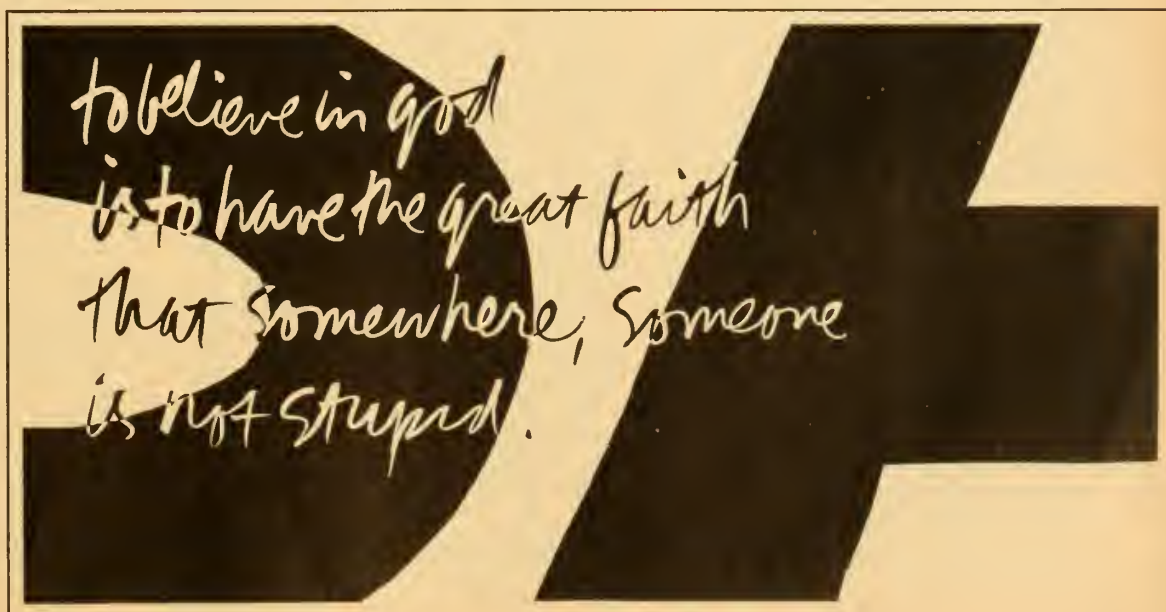 to believe in god
is to have the great faith
that somewhere, someone
is not stupid.